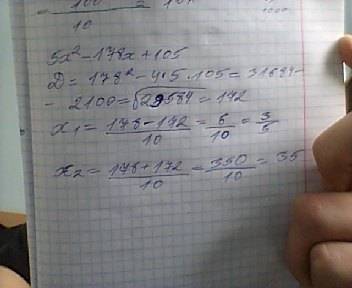 10
5x² - 178x + 105
D = 178² - 4·5·105 = 31684 -
- 2100 = √29584 = 172
x₁ = (178 - 172)/10 = 6/10 = 3/5
x₂ = (178 + 172)/10 = 350/10 = 35